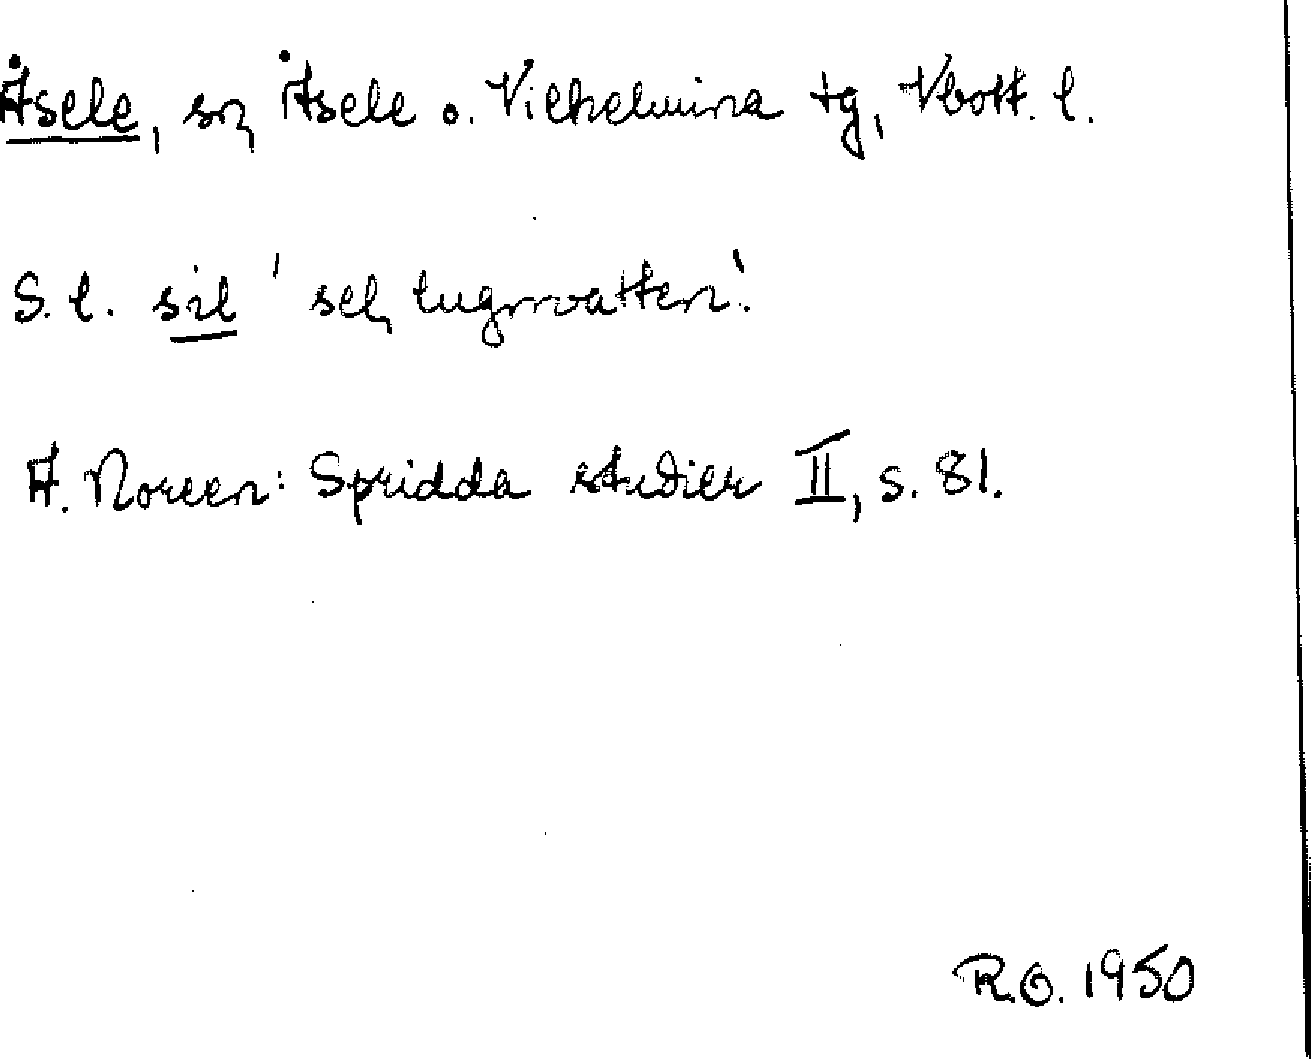 Åsele, sn, Åsele o. Vilhelmina tg, Vbott. l.
S. l. sil 'sel, lugnvatten'.
A. Noreen: Spridda studier II, s. 81.
R.O. 1950